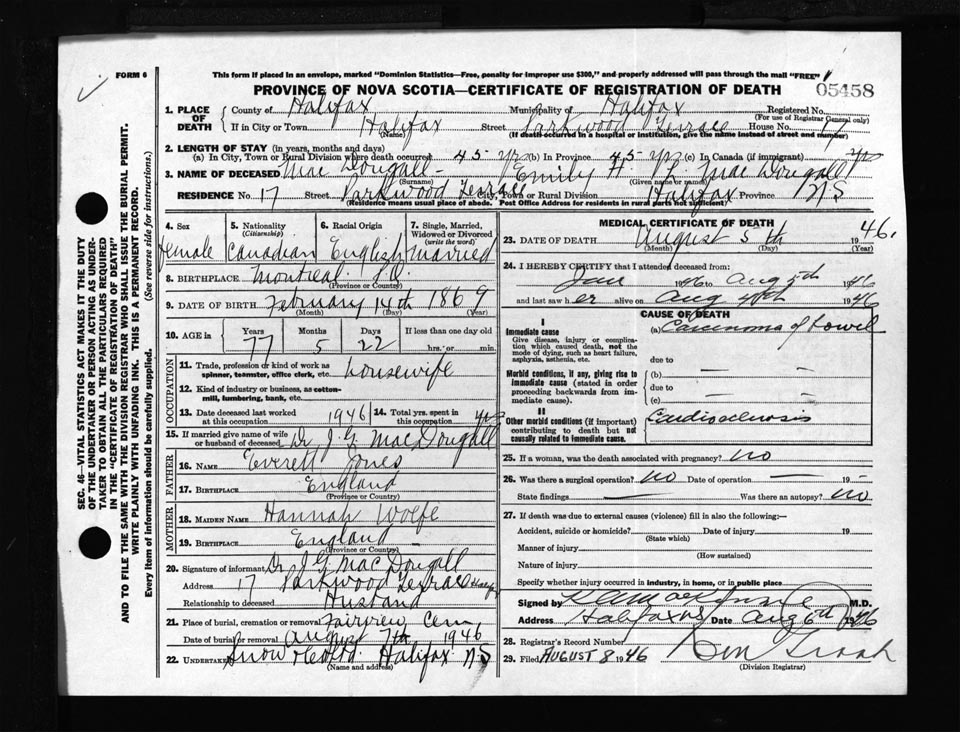 FORM 6
This form if placed in an envelope, marked "Dominion Statistics—Free, penalty for improper use $300," and properly addressed will pass through the mail "FREE"
PROVINCE OF NOVA SCOTIA—CERTIFICATE OF REGISTRATION OF DEATH
05458
1. PLACE OF DEATH
County of Halifax Municipality of Halifax Registered No.
(For use of Registrar General only)
If in City or Town Halifax Street Parkwood Terrace House No.
(Name) (If death occurred in a hospital or institution, give the name instead of street and number)
2. LENGTH OF STAY (in years, months and days)
(a) In City, Town or Rural Division where death occurred 45 yrs (b) In Province 45 yrs (c) In Canada (if immigrant)
3. NAME OF DECEASED Mac Dougall - Emily H. Mac Dougall
(Surname) (Given name or names)
RESIDENCE No. 17 Street Parkwood Terrace City, Town or Rural Division Halifax Province N.S
(Residence means usual place of abode. Post Office Address for residents in rural parts not sufficient)
4. Sex 5. Nationality (Citizenship) 6. Racial Origin 7. Single, Married, Widowed or Divorced (write the word)
female Canadian English Married
8. BIRTHPLACE Montreal P.Q.
(Province or Country)
9. DATE OF BIRTH February 14th 1869
(Month) (Day) (Year)
10. AGE in Years Months Days If less than one day old
77 5 22 hrs. or min.
OCCUPATION
11. Trade, profession or kind of work as spinner, teamster, office clerk, etc. housewife
12. Kind of industry or business, as cotton-mill, lumbering, bank, etc.
13. Date deceased last worked at this occupation 1946 14. Total yrs. spent in this occupation
15. If married give name of wife or husband of deceased Dr J. G. MacDougall
FATHER
16. NAME Everett Jones
17. BIRTHPLACE England
(Province or Country)
MOTHER
18. MAIDEN NAME Hannah Wolfe
19. BIRTHPLACE England
(Province or Country)
20. Signature of informant Dr J G MacDougall
Address 17 Parkwood Terrace Halifax
Relationship to deceased Husband
21. Place of burial, cremation or removal Fairview Cem
Date of burial or removal August 7th 1946
22. UNDERTAKER Snow & Co Ltd. Halifax N.S
(Name and address)
MEDICAL CERTIFICATE OF DEATH
23. DATE OF DEATH August 5th 1946.
(Month) (Day) (Year)
24. I HEREBY CERTIFY that I attended deceased from:
Jan 1946 to Aug 5th 1946
and last saw her alive on Aug 1946
CAUSE OF DEATH
I
Immediate cause
Give disease, injury or complication which caused death, not the mode of dying, such as heart failure, asphyxia, asthenia, etc.
(a) Carcinoma of bowel
due to
Morbid conditions, if any, giving rise to immediate cause (stated in order proceeding backwards from immediate cause).
(b) — —
due to
(c) — —
II
Other morbid conditions (if important) contributing to death but not causally related to immediate cause.
Cardiosclerosis
25. If a woman, was the death associated with pregnancy? no
26. Was there a surgical operation? no Date of operation — 19
State findings — Was there an autopsy? no
27. If death was due to external causes (violence) fill in also the following:—
Accident, suicide or homicide? Date of injury 19
(State which)
Manner of injury
(How sustained)
Nature of injury
Specify whether injury occurred in industry, in home, or in public place
Signed by M.D.
Address Halifax NS Date Aug 6th 1946
28. Registrar's Record Number
29. Filed AUGUST 8 1946
(Division Registrar)
SEC. 46—VITAL STATISTICS ACT MAKES IT THE DUTY
OF THE UNDERTAKER OR PERSON ACTING AS UNDER-
TAKER TO OBTAIN ALL THE PARTICULARS REQUIRED
IN THE "CERTIFICATE OF REGISTRATION OF DEATH"
AND TO FILE THE SAME WITH THE DIVISION REGISTRAR WHO SHALL ISSUE THE BURIAL PERMIT.
WRITE PLAINLY WITH UNFADING INK. THIS IS A PERMANENT RECORD.
Every item of information should be carefully supplied. (See reverse side for instructions.)